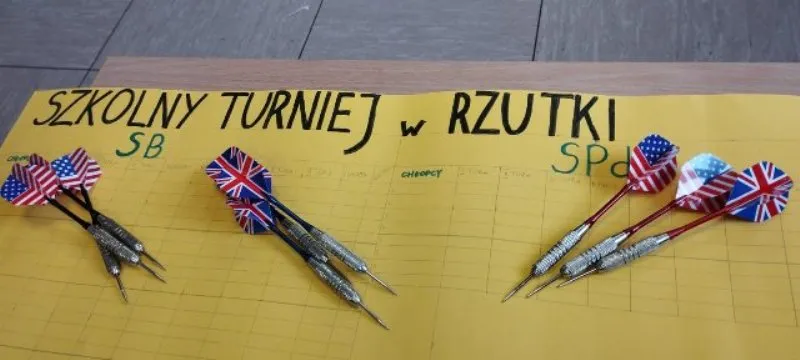 SZKOLNY TURNIEJ w RZUTKI
SB SPd
CHŁOPCY